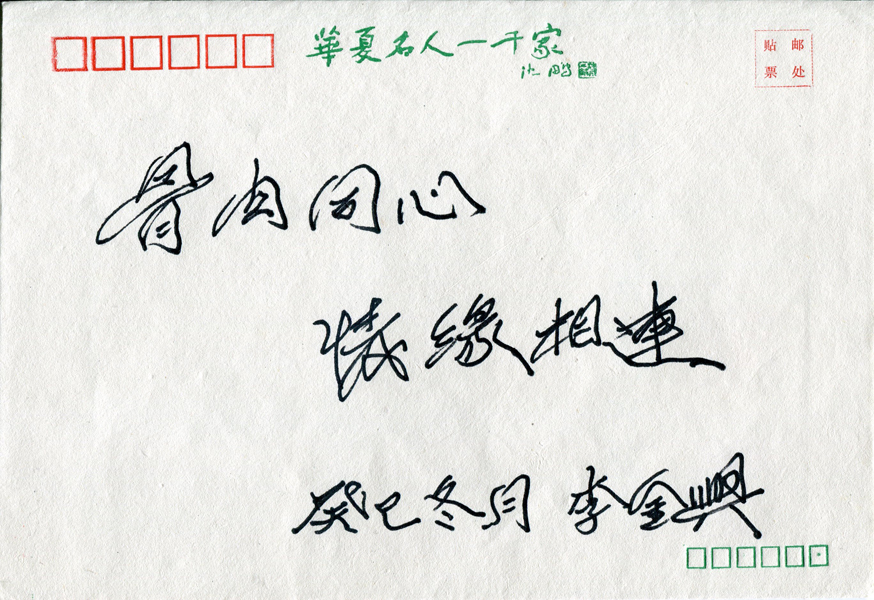 華夏名人一千家
沈鹏
贴 邮
票 处
骨肉同心
情緣相連
癸巳冬月 李金興